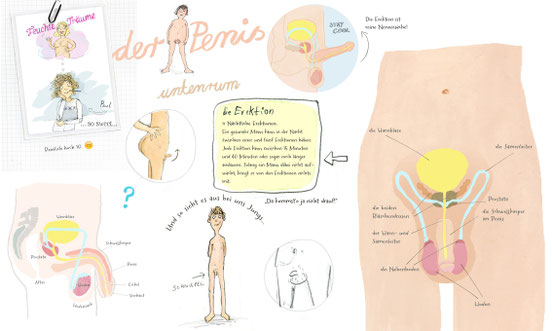 Feuchte Träume
Paul
... so sweet...
der Penis
untenrum
STAY
COOL
Die Erektion ist
reine Nervensache!
Erektion
Nächtliche Erektionen.
Ein gesunder Mann kann in der Nacht
zwischen einer und fünf Erektionen haben.
Jede Erektion kann zwischen 15 Minuten
und 60 Minuten oder sogar noch länger
andauern. Solang ein Mann dabei nicht auf-
wacht, kriegt er von den Erektionen nichts
mit.
?
Und so sieht es aus bei uns Jungs...
„Da kommste ja nicht drauf!"
Harnblase
Schwellkörper
Prostata
Penis
After
Eichel
Hoden
Vorhaut
Hodensack
die Harnblase
die Samenleiter
Prostata
die beiden
Bläschendrüsen
der Schwellkörper
im Penis
die Harn- und
Samenröhre
die Nebenhoden
Hoden